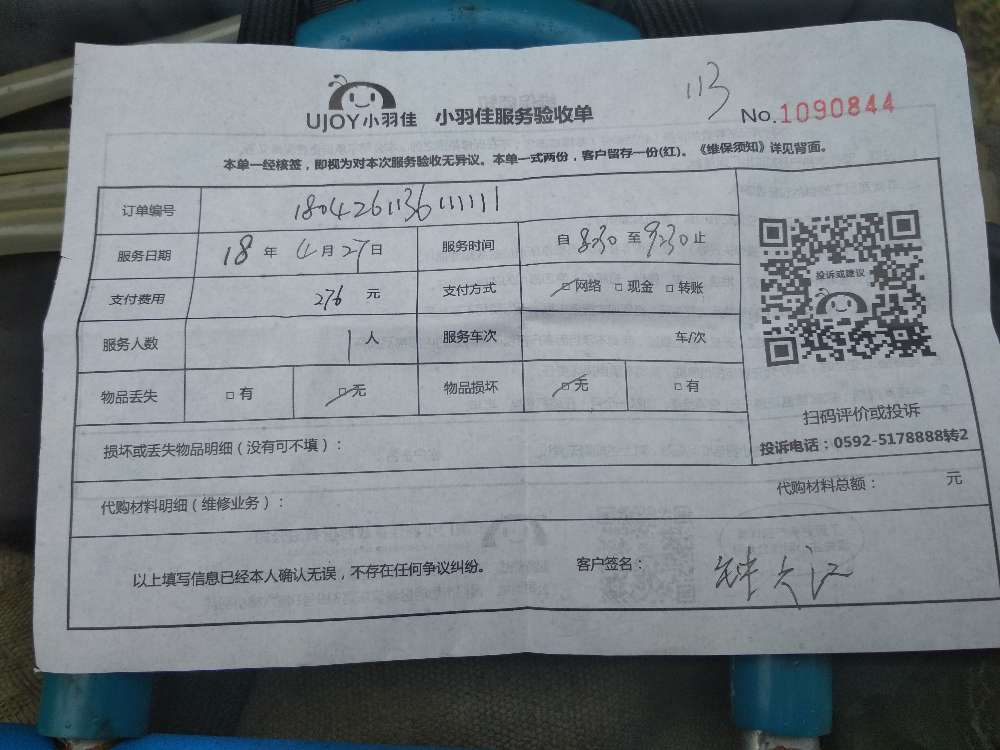 113
UJOY小羽佳 小羽佳服务验收单 No.1090844
本单一经核签，即视为对本次服务验收无异议。本单一式两份，客户留存一份(红)。《维保须知》详见背面。
订单编号 180426113611111
服务日期 18年4月27日 服务时间 自8:30至9:30止
支付费用 276元 支付方式 □网络 □现金 □转账
投诉或建议
服务人数 1人 服务车次 车/次
物品丢失 □有 □无 物品损坏 □无 □有
扫码评价或投诉
投诉电话：0592-5178888转2
损坏或丢失物品明细（没有可不填）：
代购材料明细（维修业务）： 代购材料总额： 元
以上填写信息已经本人确认无误，不存在任何争议纠纷。 客户签名：